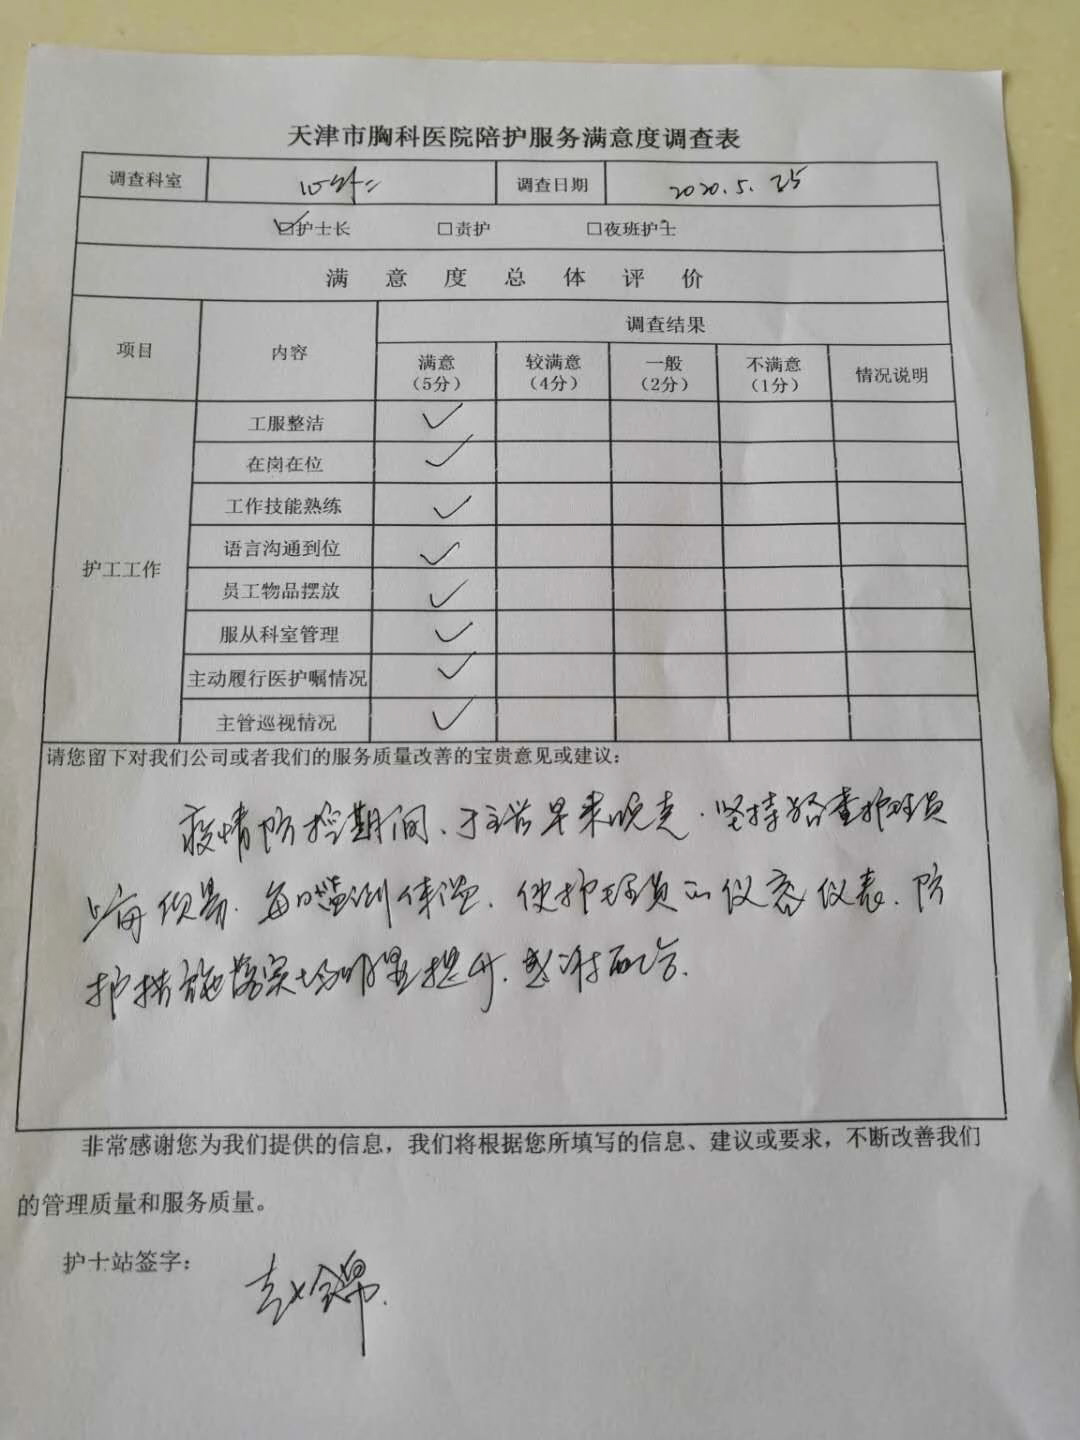 天津市胸科医院陪护服务满意度调查表
调查科室 心外二 调查日期 2020.5.25
☑护士长 □责护 □夜班护士
满意度总体评价
项目 内容 调查结果
满意（5分） 较满意（4分） 一般（2分） 不满意（1分） 情况说明
护工工作
工服整洁 ✓
在岗在位 ✓
工作技能熟练 ✓
语言沟通到位 ✓
员工物品摆放 ✓
服从科室管理 ✓
主动履行医护嘱情况 ✓
主管巡视情况 ✓
请您留下对我们公司或者我们的服务质量改善的宝贵意见或建议：
疫情防控期间、于主管早来晚走，坚持检查护理员
每日监测体温，使护理员的仪容仪表、防
护措施落实均明显提升，感谢配合。
非常感谢您为我们提供的信息，我们将根据您所填写的信息、建议或要求，不断改善我们
的管理质量和服务质量。
护士站签字：
赵锦